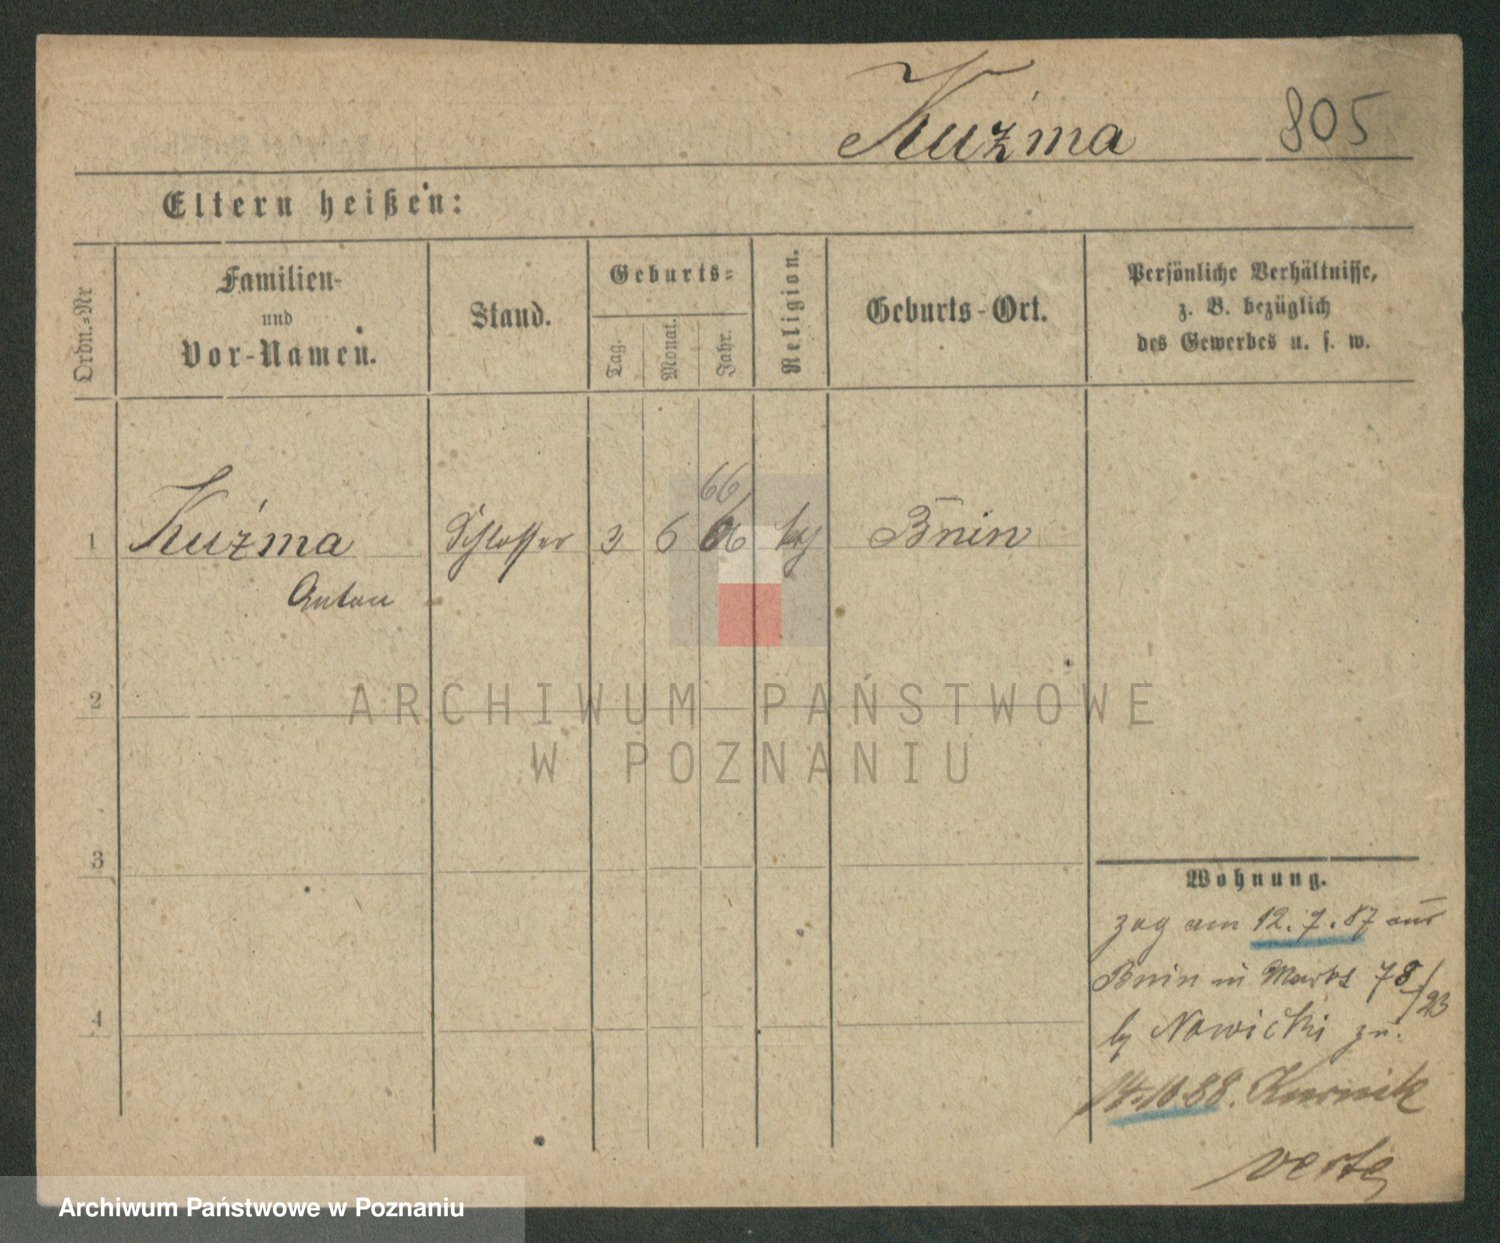 Kuźma 805
Eltern heißen:
Ordn.-Nr
Familien-
und
Vor-Namen.
Stand.
Geburts-
Tag.
Monat.
Jahr.
Religion.
Geburts-Ort.
Persönliche Verhältnisse,
z. B. bezüglich
des Gewerbes u. s. w.
66
1 Kuźma Schlosser 3 6 66 kth Bnin
Anton
2
ARCHIWUM PAŃSTWOWE
W POZNANIU
3
Wohnung.
zog am 12.7.87 aus
Bnin in Markt 78/23
by Nowicki zu.
88. Kurnik
4
verte
Archiwum Państwowe w Poznaniu